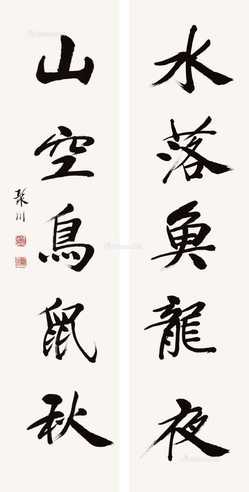 水落魚龍夜
山空鳥鼠秋
聚川